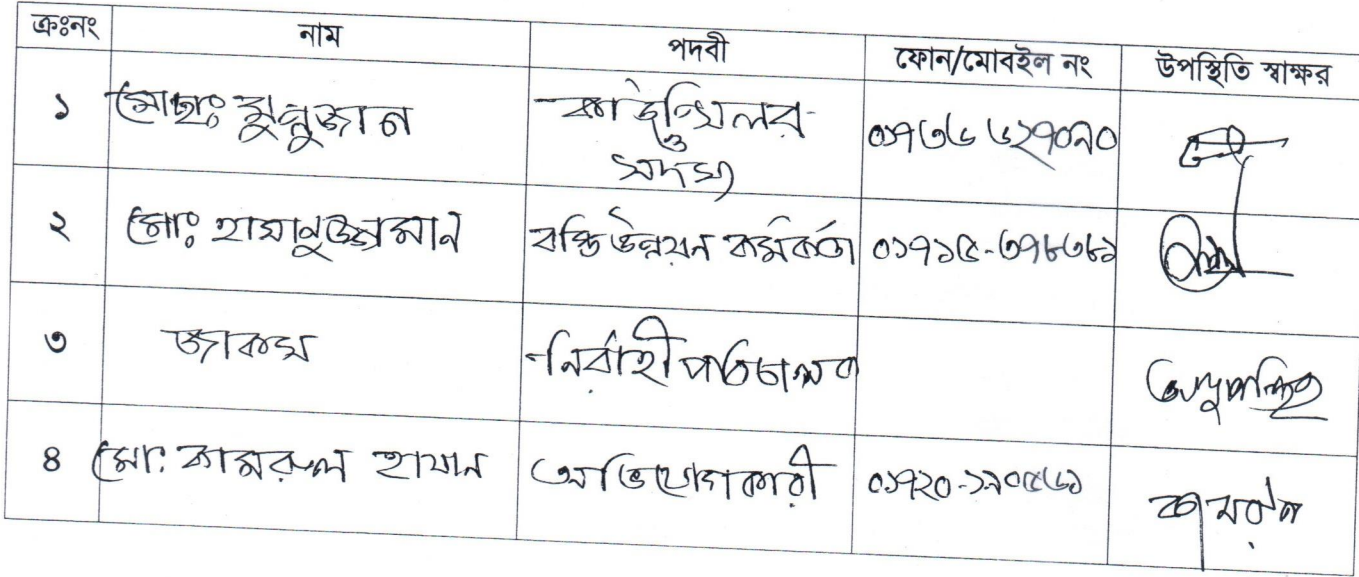 ক্রঃনং নাম পদবী ফোন/মোবইল নং উপস্থিতি স্বাক্ষর
১ মোছাঃ মুন্নুজান কাউন্সিলর ও সদস্য
২ মোঃ হাসানুজ্জামান বস্তি উন্নয়ন কর্মকর্তা ০১৭১৫-৩৭৮৩৮১
৩ জাকস নির্বাহী পরিচালক অনুপস্থিত
৪ মোঃ কামরুল হাসান অভিযোগকারী ০১৭২০-১৯০৫৬১ কামরুল